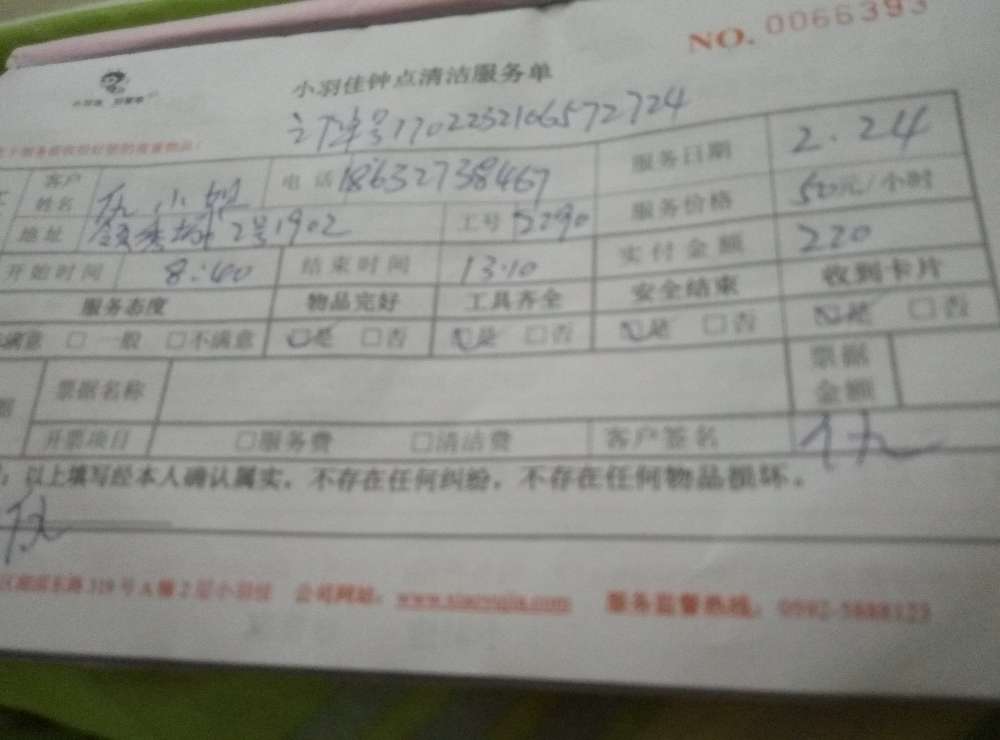 NO. 0066393
小羽佳钟点清洁服务单
订单号1702232166572724
客户姓名 伍小姐 电话 18632738467 服务日期 2.24
地址 2号1902 工号 服务价格 50元/小时
开始时间 8:40 结束时间 13:10 实付金额 220
服务态度 物品完好 工具齐全 安全结束 收到卡片
满意 □ 一般 □不满意 □是 □否 □是 □否 □是 □否 □是 □否
票据名称 票据金额
开票项目 □服务费 □清洁费 客户签名 伍
：以上填写经本人确认属实，不存在任何纠纷，不存在任何物品损坏。
伍
319号A幢2层小羽佳 公司网站： www.xiaoyujia.com 服务监督热线：